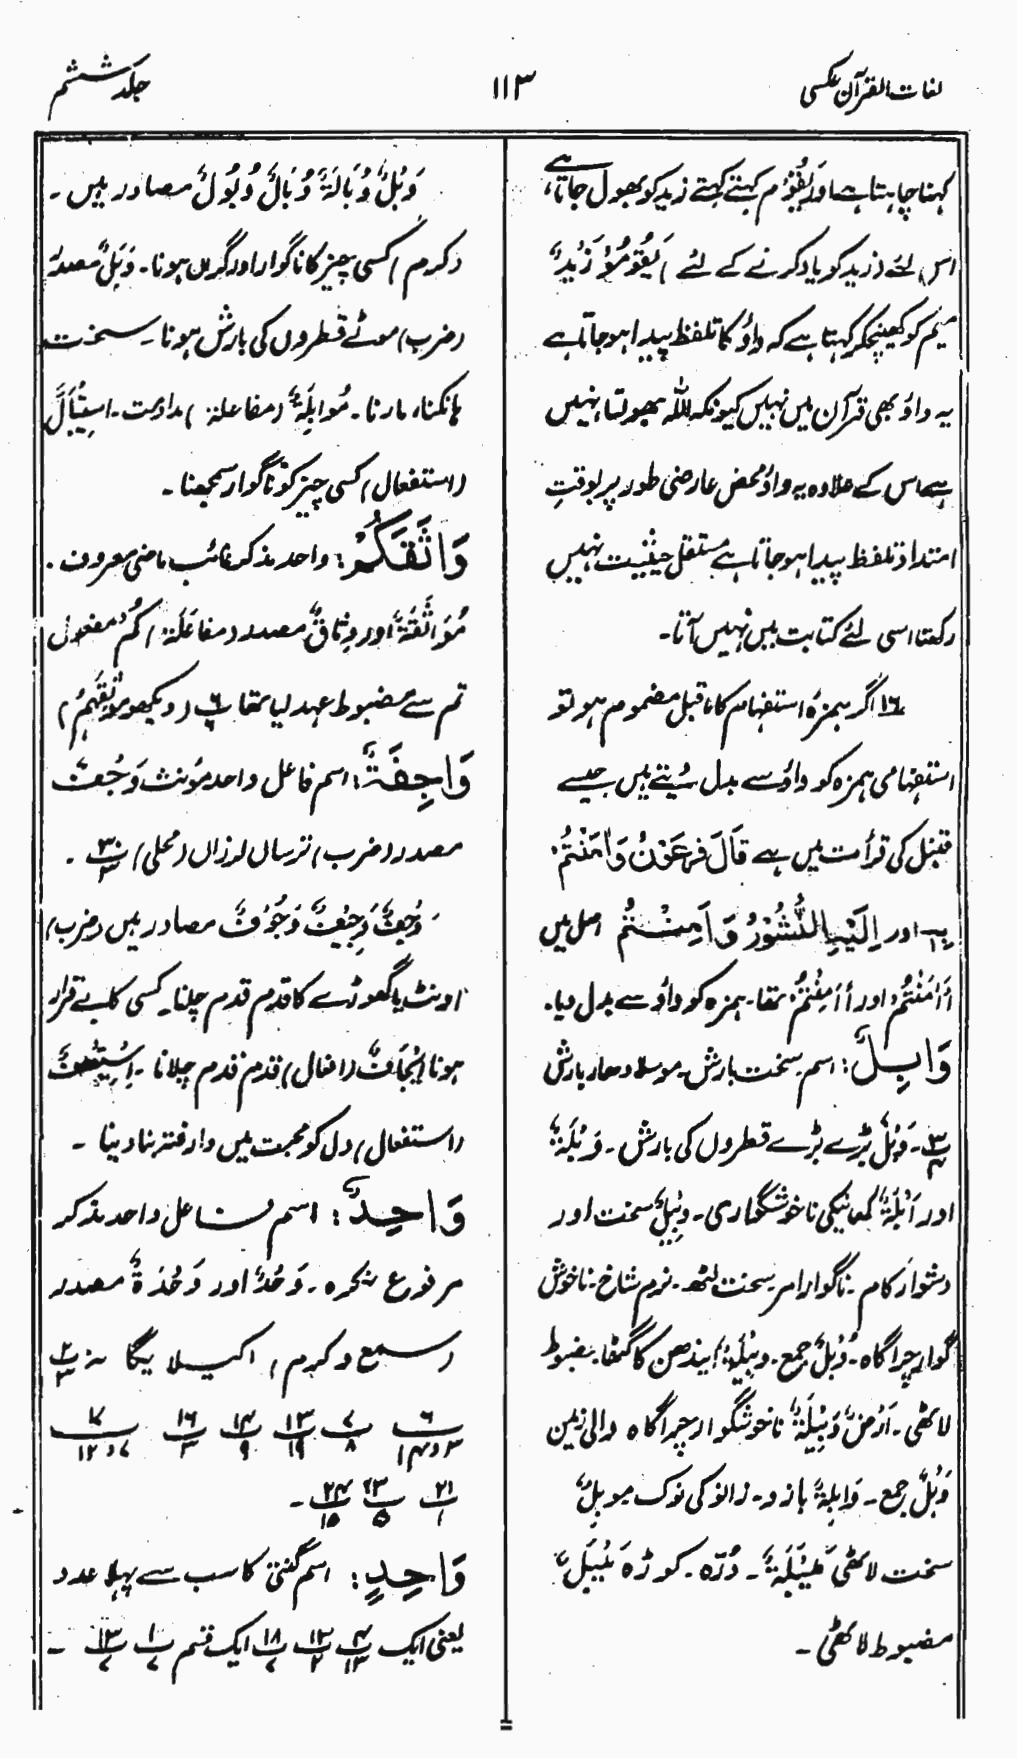 لغات القرآن عکسی
۱۱۳
جلد ششم
کہنا چاہتا ہے اور یَقُوْم کہتے کہتے زید کو بھول جاتا ہے،
اس لئے زید کو یاد کرنے کے لئے (یَقُوْمُوْ زَیْدٌ)
میم کو کھینچکر کہتا ہے کہ واؤ کا تلفظ پیدا ہو جاتا ہے
یہ واؤ بھی قرآن میں نہیں کیونکہ اللہ بھولتا نہیں
ہے اس کے علاوہ یہ واؤ محض عارضی طور پر بوقتِ
امتداد تلفظ پیدا ہو جاتا ہے مستقل حیثیت نہیں
رکھتا اسی لئے کتابت میں نہیں آتا۔
۱۶ اگر ہمزہ استفہام کا ماقبل مضموم ہو تو
استفہامی ہمزہ کو واؤ سے بدل دیتے ہیں جیسے
قنبل کی قرأت میں ہے قَالَ فِرْعَوْنُ وَاٰمَنْتُمْ
اور اِلَیْہِ النُّشُوْرُ وَاَمِنْتُمْ اصل میں
أَاٰمَنْتُمْ اور أَأَمِنْتُمْ تھا۔ ہمزہ کو واؤ سے بدل دیا۔
وَابِلٌ: اسم سخت بارش۔ موسلا دھار بارش
۳/۴۔ وَبْلٌ بڑے بڑے قطروں کی بارش۔ وَبَلَۃٌ
اور اَبَلَۃٌ کھانیکی ناخوشگواری۔ وَبِیْلٌ سخت اور
دشوار کام۔ ناگوار امر۔ سخت لٹھ۔ نرم شاخ۔ ناخوش
گوار چراگاہ۔ وُبُلٌ جمع۔ وَبِیْلَۃٌ ایندھن کا گٹھا۔ مضبوط
لاٹھی۔ اَرْضٌ وَبِیْلَۃٌ ناخوشگوار چراگاہ والی زمین
وُبُلٌ جمع۔ وَابِلَۃٌ بازو۔ زانو کی نوک مَوبِلٌ
سخت لاٹھی مِیْبَلَۃٌ۔ دُرّہ۔ کوڑہ مِیْبَلٌ
مضبوط لاٹھی۔
وَبْلٌ وُبَالَۃٌ وُبَالٌ وُبُولٌ مصادر ہیں۔
(کرم) کسی چیز کا ناگوار اور گراں ہونا۔ وَبْلٌ مصدر
(ضرب) موٹے قطروں کی بارش ہونا۔ سخت
ہانکنا، مارنا۔ مُوَابَلَۃٌ (مفاعلۃ) مداومت۔ اِسْتِیْبَالٌ
(استفعال) کسی چیز کو ناگوار سمجھنا۔
وَاثَقَکُمْ: واحد مذکر غائب ماضی معروف۔
مُوَاثَقَۃٌ اور وِثَاقٌ مصدر (مفاعَلَۃ) کُمْ مفعول
تم سے مضبوط عہد لیا تھا ۶ (دیکھو مَوْثِقَہُمْ)
وَاجِفَۃٌ: اسم فاعل واحد مؤنث وَجْفٌ
مصدر (ضرب) ترساں لرزاں (محلی) ۳۰/۳۔
وَجْفٌ وَجِیْفٌ وَجُوْفٌ مصادر ہیں (ضرب)
اونٹ یا گھوڑے کا قدم قدم چلنا۔ کسی کا بے قرار
ہونا اِیْجَافٌ (افعال) قدم قدم چلانا۔ اِسْتِیْجَافٌ
(استفعال) دل کو محبت میں وارفتہ بنا دینا۔
وَاحِدٌ: اسم فاعل واحد مذکر
مرفوع نکرہ۔ وَحْدٌ اور وَحْدَۃٌ مصدر
(سمع و کرم) اکیلا یگانہ ۲/۳
۶/۳و۱۴ ۷/۸ ۱۳/۱۹ ۱۴/۹ ۱۶/۳ ۱۷/۷و۱۲
۲۱/۱ ۲۳/۵ ۲۴/۱۵۔
وَاحِدٍ: اسم گنتی کا سب سے پہلا عدد
یعنی ایک ۴/۱۳ ۱۲/۲ ۱۸/۷ ایک قسم ۱/۷ ۱۳/۷۔